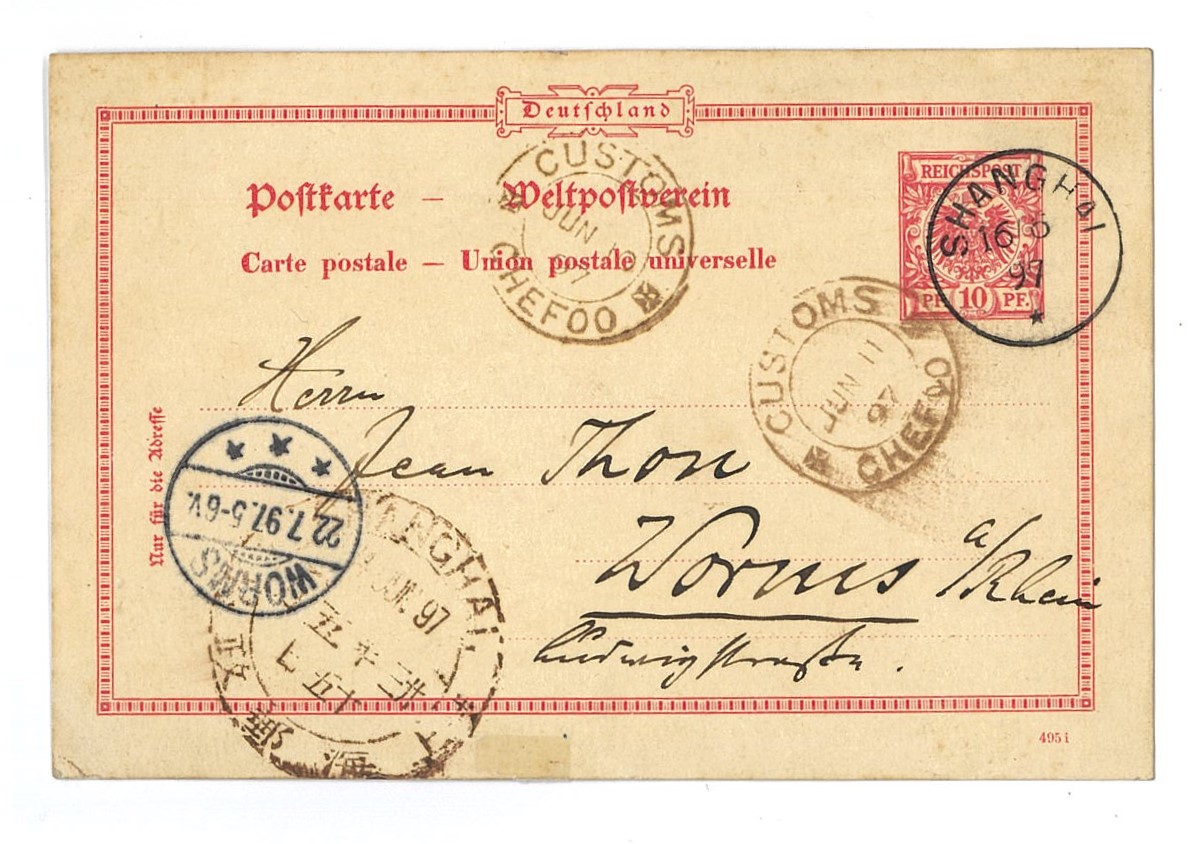 Deutschland
Postkarte — Weltpostverein
Carte postale — Union postale universelle
REICHSPOST
PF. 10 PF.
SHANGHAI
16 6
97
CUSTOMS
JUN 10
97
CHEFOO
CUSTOMS
JUN 11
97
CHEFOO
Herrn
Jean Thon
Worms a/Rhein
Ludwigstraße.
Nur für die Adresse
WORMS
22.7.97.5-6V.
SHANGHAI
JUN 97
495 i